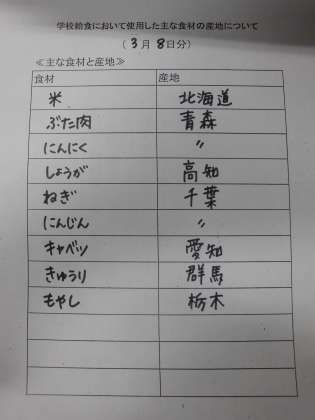 学校給食において使用した主な食材の産地について
(3月8日分)
≪主な食材と産地≫
食材 産地
米 北海道
ぶた肉 青森
にんにく 〃
しょうが 高知
ねぎ 千葉
にんじん 〃
キャベツ 愛知
きゅうり 群馬
もやし 栃木